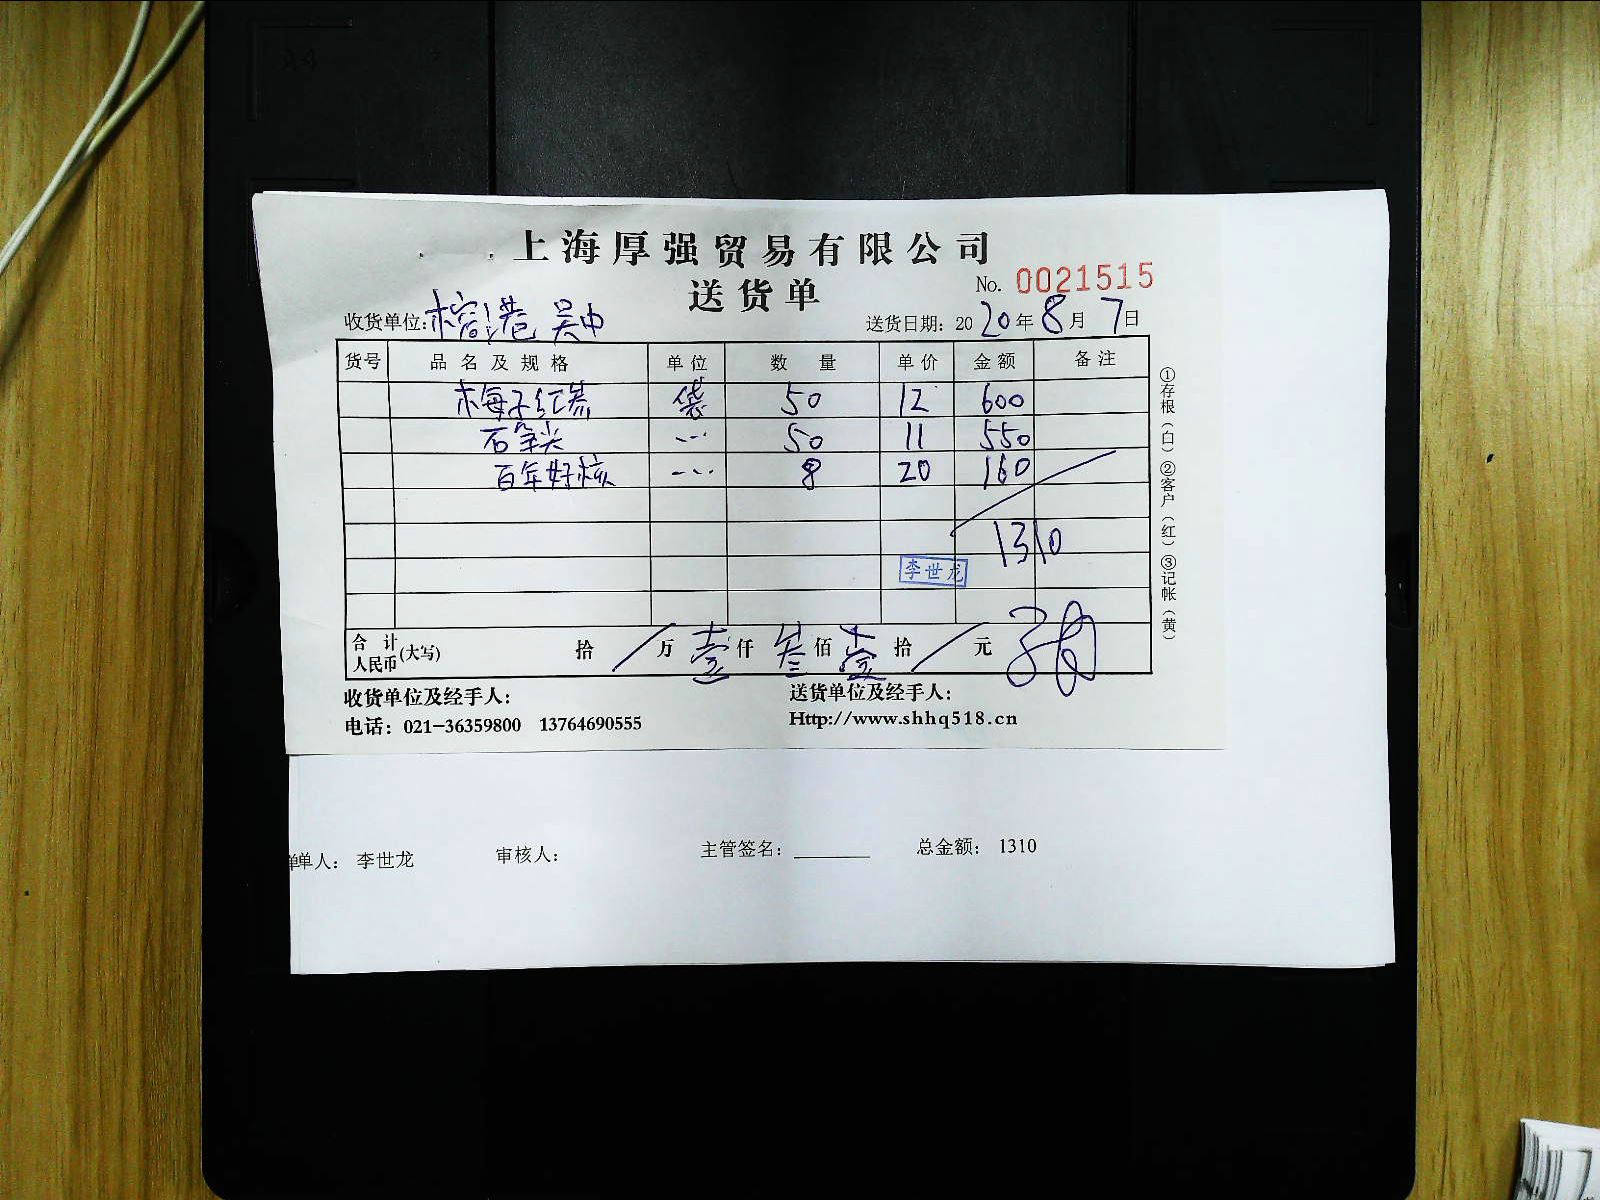 上海厚强贸易有限公司
送货单
No. 0021515
收货单位: 榕港 吴中
送货日期: 2020年8月7日
货号 品名及规格 单位 数量 单价 金额 备注
梅子红茶 袋 50 12 600
50 11 550
百年好核 8 20 160
1310
李世龙
合计人民币(大写) 拾 / 万 壹 仟 叁 佰 壹 拾 / 元
收货单位及经手人:
送货单位及经手人:
电话: 021-36359800 13764690555
Http://www.shhq518.cn
①存根(白)②客户(红)③记帐(黄)
单人: 李世龙 审核人: 主管签名: 总金额: 1310